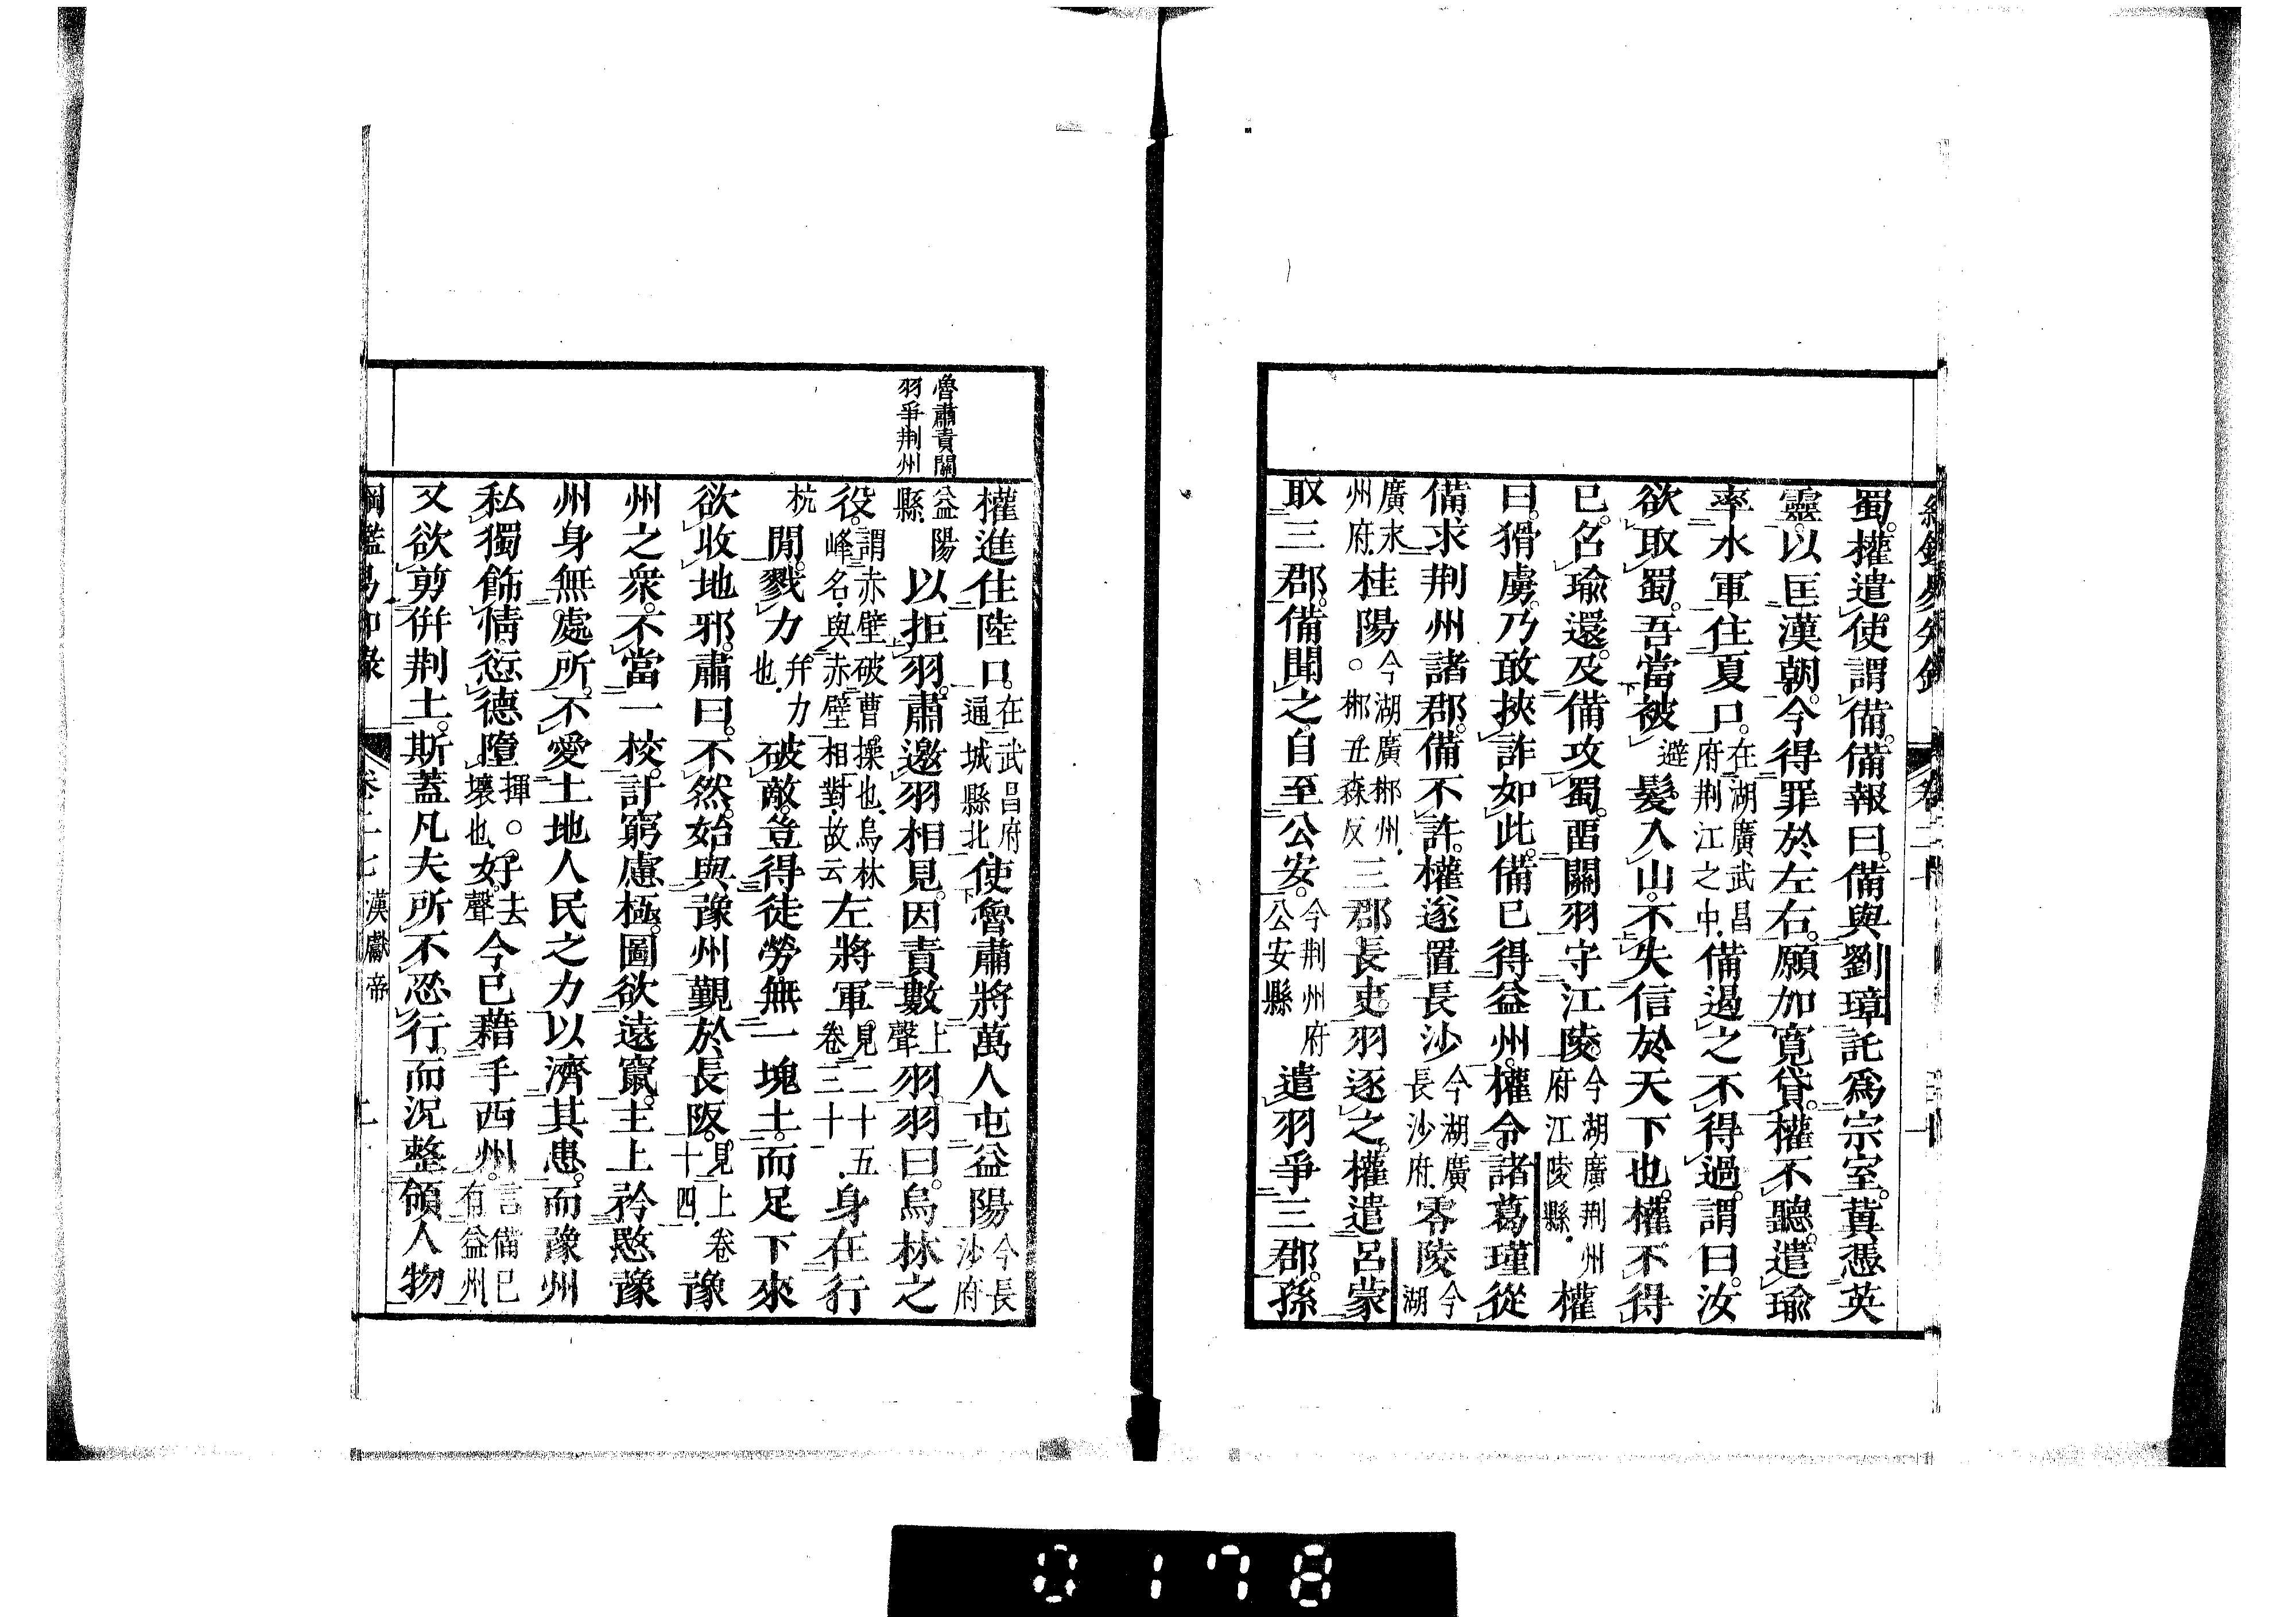 蜀。權遣使謂備。備報曰。備與劉璋託爲宗室。冀憑英
靈。以匡漢朝。今得罪於左右。願加寬貸。權不聽。遣瑜
率水軍住夏口。在湖廣武昌府荆江之中.備遏之不得過。謂曰。汝
欲取蜀。吾當被避髮入山。不失信於天下也。權不得
已。召瑜還。及備攻蜀。畱關羽守江陵。今湖廣荆州府江陵縣.權
曰。猾虜。乃敢挾詐如此。備已得益州。權令諸葛瑾從
備求荆州諸郡。備不許。權遂置長沙今湖廣長沙府.零陵今湖
廣永州府.桂陽。今湖廣郴州.郴丑森反三郡長吏。羽逐之。權遣呂蒙
取三郡。備聞之。自至公安。今荆州府公安縣遣羽爭三郡。孫
魯肅責關
羽爭荆州
權進住陸口。在武昌府通城縣北.使魯肅將萬人屯益陽今長沙府
益陽縣.以拒羽。肅邀羽相見。因責數上聲羽。羽曰。烏林之
役。謂赤壁破曹操也.烏林峰名.與赤壁相對.故云左將軍。見二十五卷三十一.身在行
杭閒。戮力幷力也.破敵。豈得徒勞無一塊土。而足下來
欲收地邪。肅曰。不然。始與豫州觀於長阪。見上卷十四.豫
州之衆。不當一校。計窮慮極。圖欲遠竄。主上矜愍豫
州身無處所。不愛土地人民之力以濟其患。而豫州
私獨飾情。愆德隳。揮。○壞也.好。去聲今已藉手西州。言備已有益州.
又欲剪併荆土。斯蓋凡夫所不忍行。而況整領人物
綱鑑易知錄 卷二七 漢獻帝